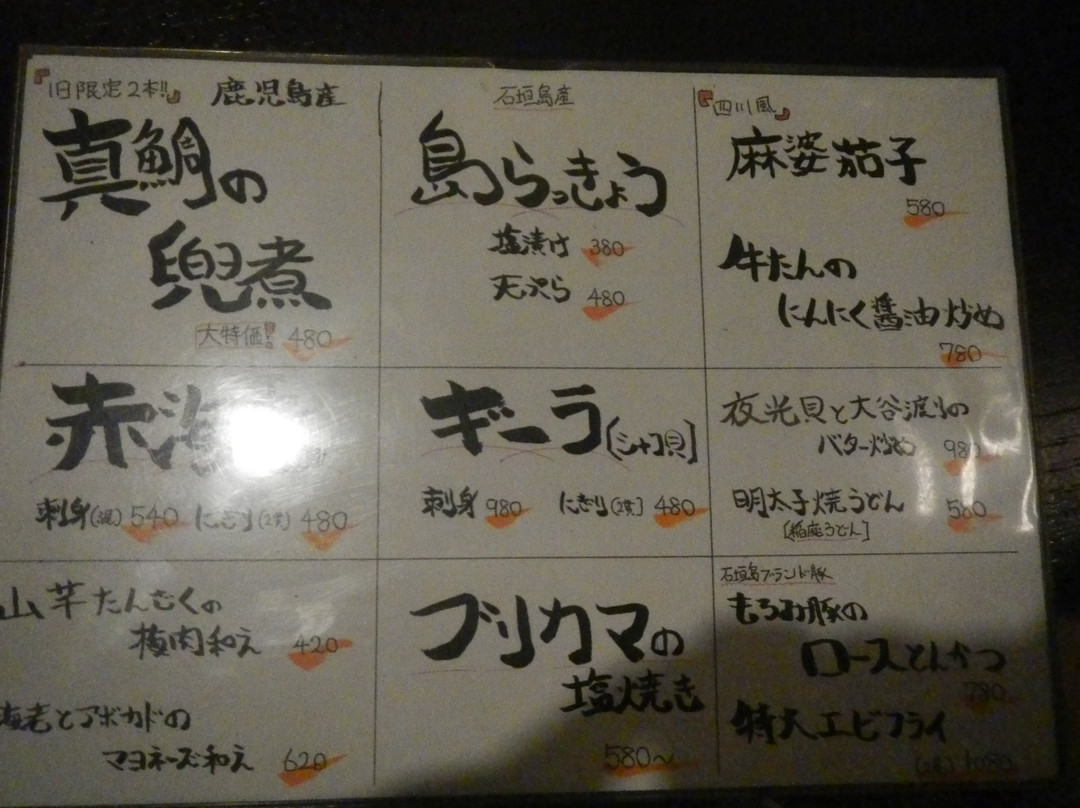 『旧限定2本!!』 鹿児島産
真鯛の
兜煮
大特価!! 480
石垣島産
島らっきょう
塩漬け 380
天ぷら 480
『四川風』
麻婆茄子
580
牛たんの
にんにく醤油炒め
780
赤海
刺身 540 にぎり(2貫) 480
ギーラ(シャコ貝)
刺身 980 にぎり(2貫) 480
夜光貝と大谷渡りの
バター炒め 980
明太子焼うどん 580
[稲庭うどん]
山芋たんざくの
梅肉和え 420
海老とアボカドの
マヨネーズ和え 620
ブリカマの
塩焼き
580〜
石垣島ブランド豚
もろみ豚の
ロースとんかつ
780
特大エビフライ
1080